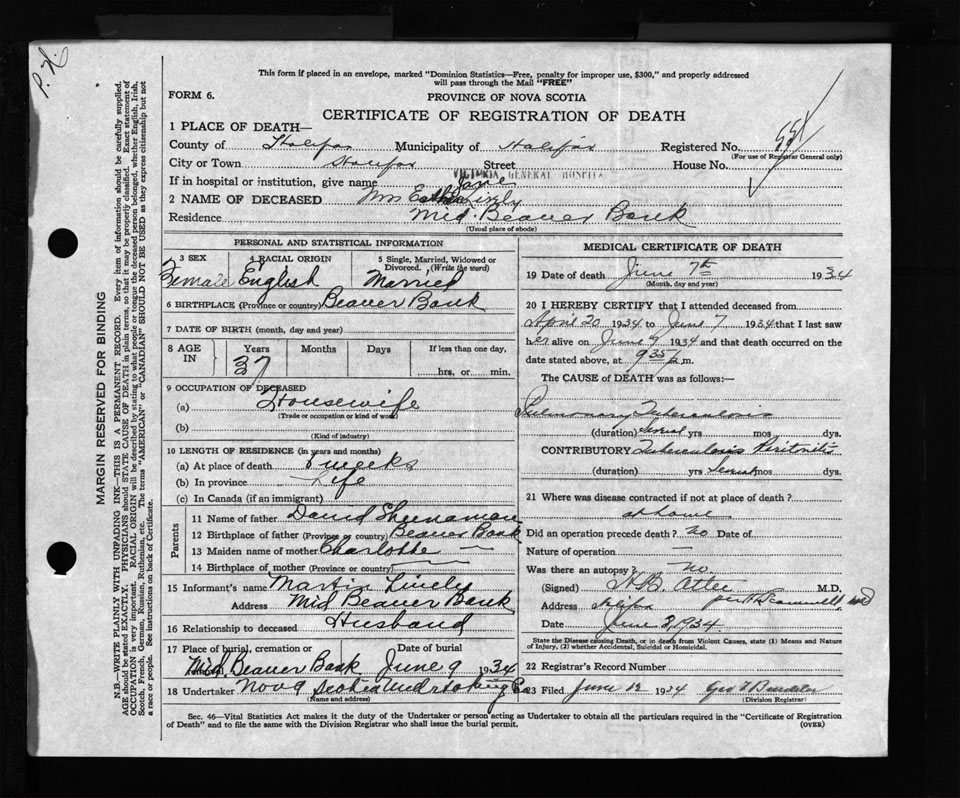 P.X.
This form if placed in an envelope, marked "Dominion Statistics—Free, penalty for improper use, $300," and properly addressed
will pass through the Mail "FREE"
FORM 6.
PROVINCE OF NOVA SCOTIA
CERTIFICATE OF REGISTRATION OF DEATH
1 PLACE OF DEATH—
County of Halifax Municipality of Halifax Registered No.
(For use of Registrar General only)
City or Town Halifax Street House No.
If in hospital or institution, give name VICTORIA GENERAL HOSPITAL
2 NAME OF DECEASED Mrs Jane Lively
Residence Mid. Beaver Bank
(Usual place of abode)
PERSONAL AND STATISTICAL INFORMATION
3 SEX Female
4 RACIAL ORIGIN English
5 Single, Married, Widowed or Divorced, (Write the word) Married
6 BIRTHPLACE (Province or country) Beaver Bank
7 DATE OF BIRTH (month, day and year)
8 AGE IN Years Months Days If less than one day,
37 hrs. or min.
9 OCCUPATION OF DECEASED
(a) Housewife
(Trade or occupation or kind of work)
(b)
(Kind of industry)
10 LENGTH OF RESIDENCE (in years and months)
(a) At place of death weeks
(b) In province Life
(c) In Canada (if an immigrant)
Parents
11 Name of father David
12 Birthplace of father (Province or country) Beaver Bank
13 Maiden name of mother Charlotte —
14 Birthplace of mother (Province or country)
15 Informant's name Martin Lively
Address Mid Beaver Bank
16 Relationship to deceased Husband
17 Place of burial, cremation or Date of burial
Mid. Beaver Bank June 9 1934
18 Undertaker Nova Scotia Undertaking Co
(Name and address)
MEDICAL CERTIFICATE OF DEATH
19 Date of death June 7th 1934
(Month, day and year)
20 I HEREBY CERTIFY that I attended deceased from
April 20 1934 to June 7 1934 that I last saw
her alive on June 1934 and that death occurred on the
date stated above, at 9 35 m.
The CAUSE of DEATH was as follows:—
Pulmonary Tuberculosis
(duration) yrs mos dys.
CONTRIBUTORY Tuberculosis Peritonitis
(duration) yrs mos dys.
21 Where was disease contracted if not at place of death?
at home
Did an operation precede death? no Date of
Nature of operation —
Was there an autopsy? no.
(Signed) M.D.
Address Halifax
Date June 1934
State the Disease causing Death, or in death from Violent Causes, state (1) Means and Nature
of Injury, (2) whether Accidental, Suicidal or Homicidal.
22 Registrar's Record Number
23 Filed June 12 1934
(Division Registrar)
Sec. 46—Vital Statistics Act makes it the duty of the Undertaker or person acting as Undertaker to obtain all the particulars required in the "Certificate of Registration
of Death" and to file the same with the Division Registrar who shall issue the burial permit. (OVER)
MARGIN RESERVED FOR BINDING
N.B.—WRITE PLAINLY WITH UNFADING INK—THIS IS A PERMANENT RECORD. Every item of information should be carefully supplied.
AGE should be stated EXACTLY. PHYSICIANS should STATE CAUSE OF DEATH in plain terms, so that it may be properly classified. Exact statement of
OCCUPATION is very important. RACIAL ORIGIN will be described by stating to what people or tongue the deceased person belonged, whether English, Irish,
Scotch, French, German, Russian, Ruthenian, etc. The terms "AMERICAN" or "CANADIAN" SHOULD NOT BE USED as they express citizenship but not
a race or people. See instructions on back of Certificate.